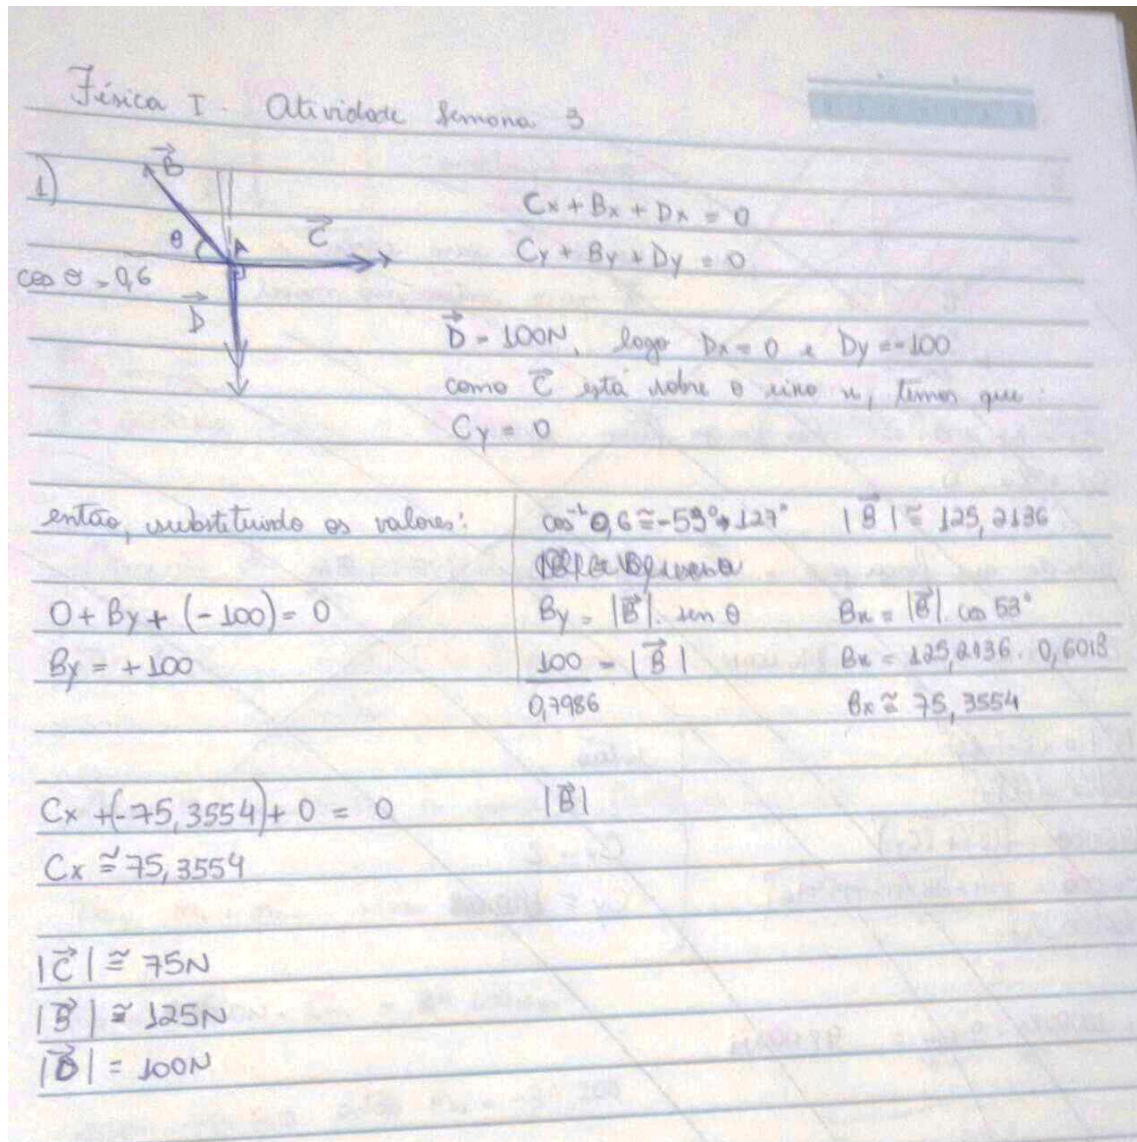 Física I - Atividade Semana 3
1)
B
θ
A
C
cos θ = 0,6
D
Cx + Bx + Dx = 0
Cy + By + Dy = 0
D = 100N, logo Dx = 0 e Dy = -100
como C está sobre o eixo x, temos que:
Cy = 0
então, substituindo os valores:
0 + By + (-100) = 0
By = +100
cos⁻¹ 0,6 ≅ -53° → 127°
By = |B| . sen θ
100 = |B|
0,7986
|B| ≅ 125,2136
Bx = |B| . cos 53°
Bx = 125,2136 . 0,6018
Bx ≅ 75,3554
Cx + (-75,3554) + 0 = 0
Cx ≅ 75,3554
|B|
|C| ≅ 75N
|B| ≅ 125N
|D| = 100N